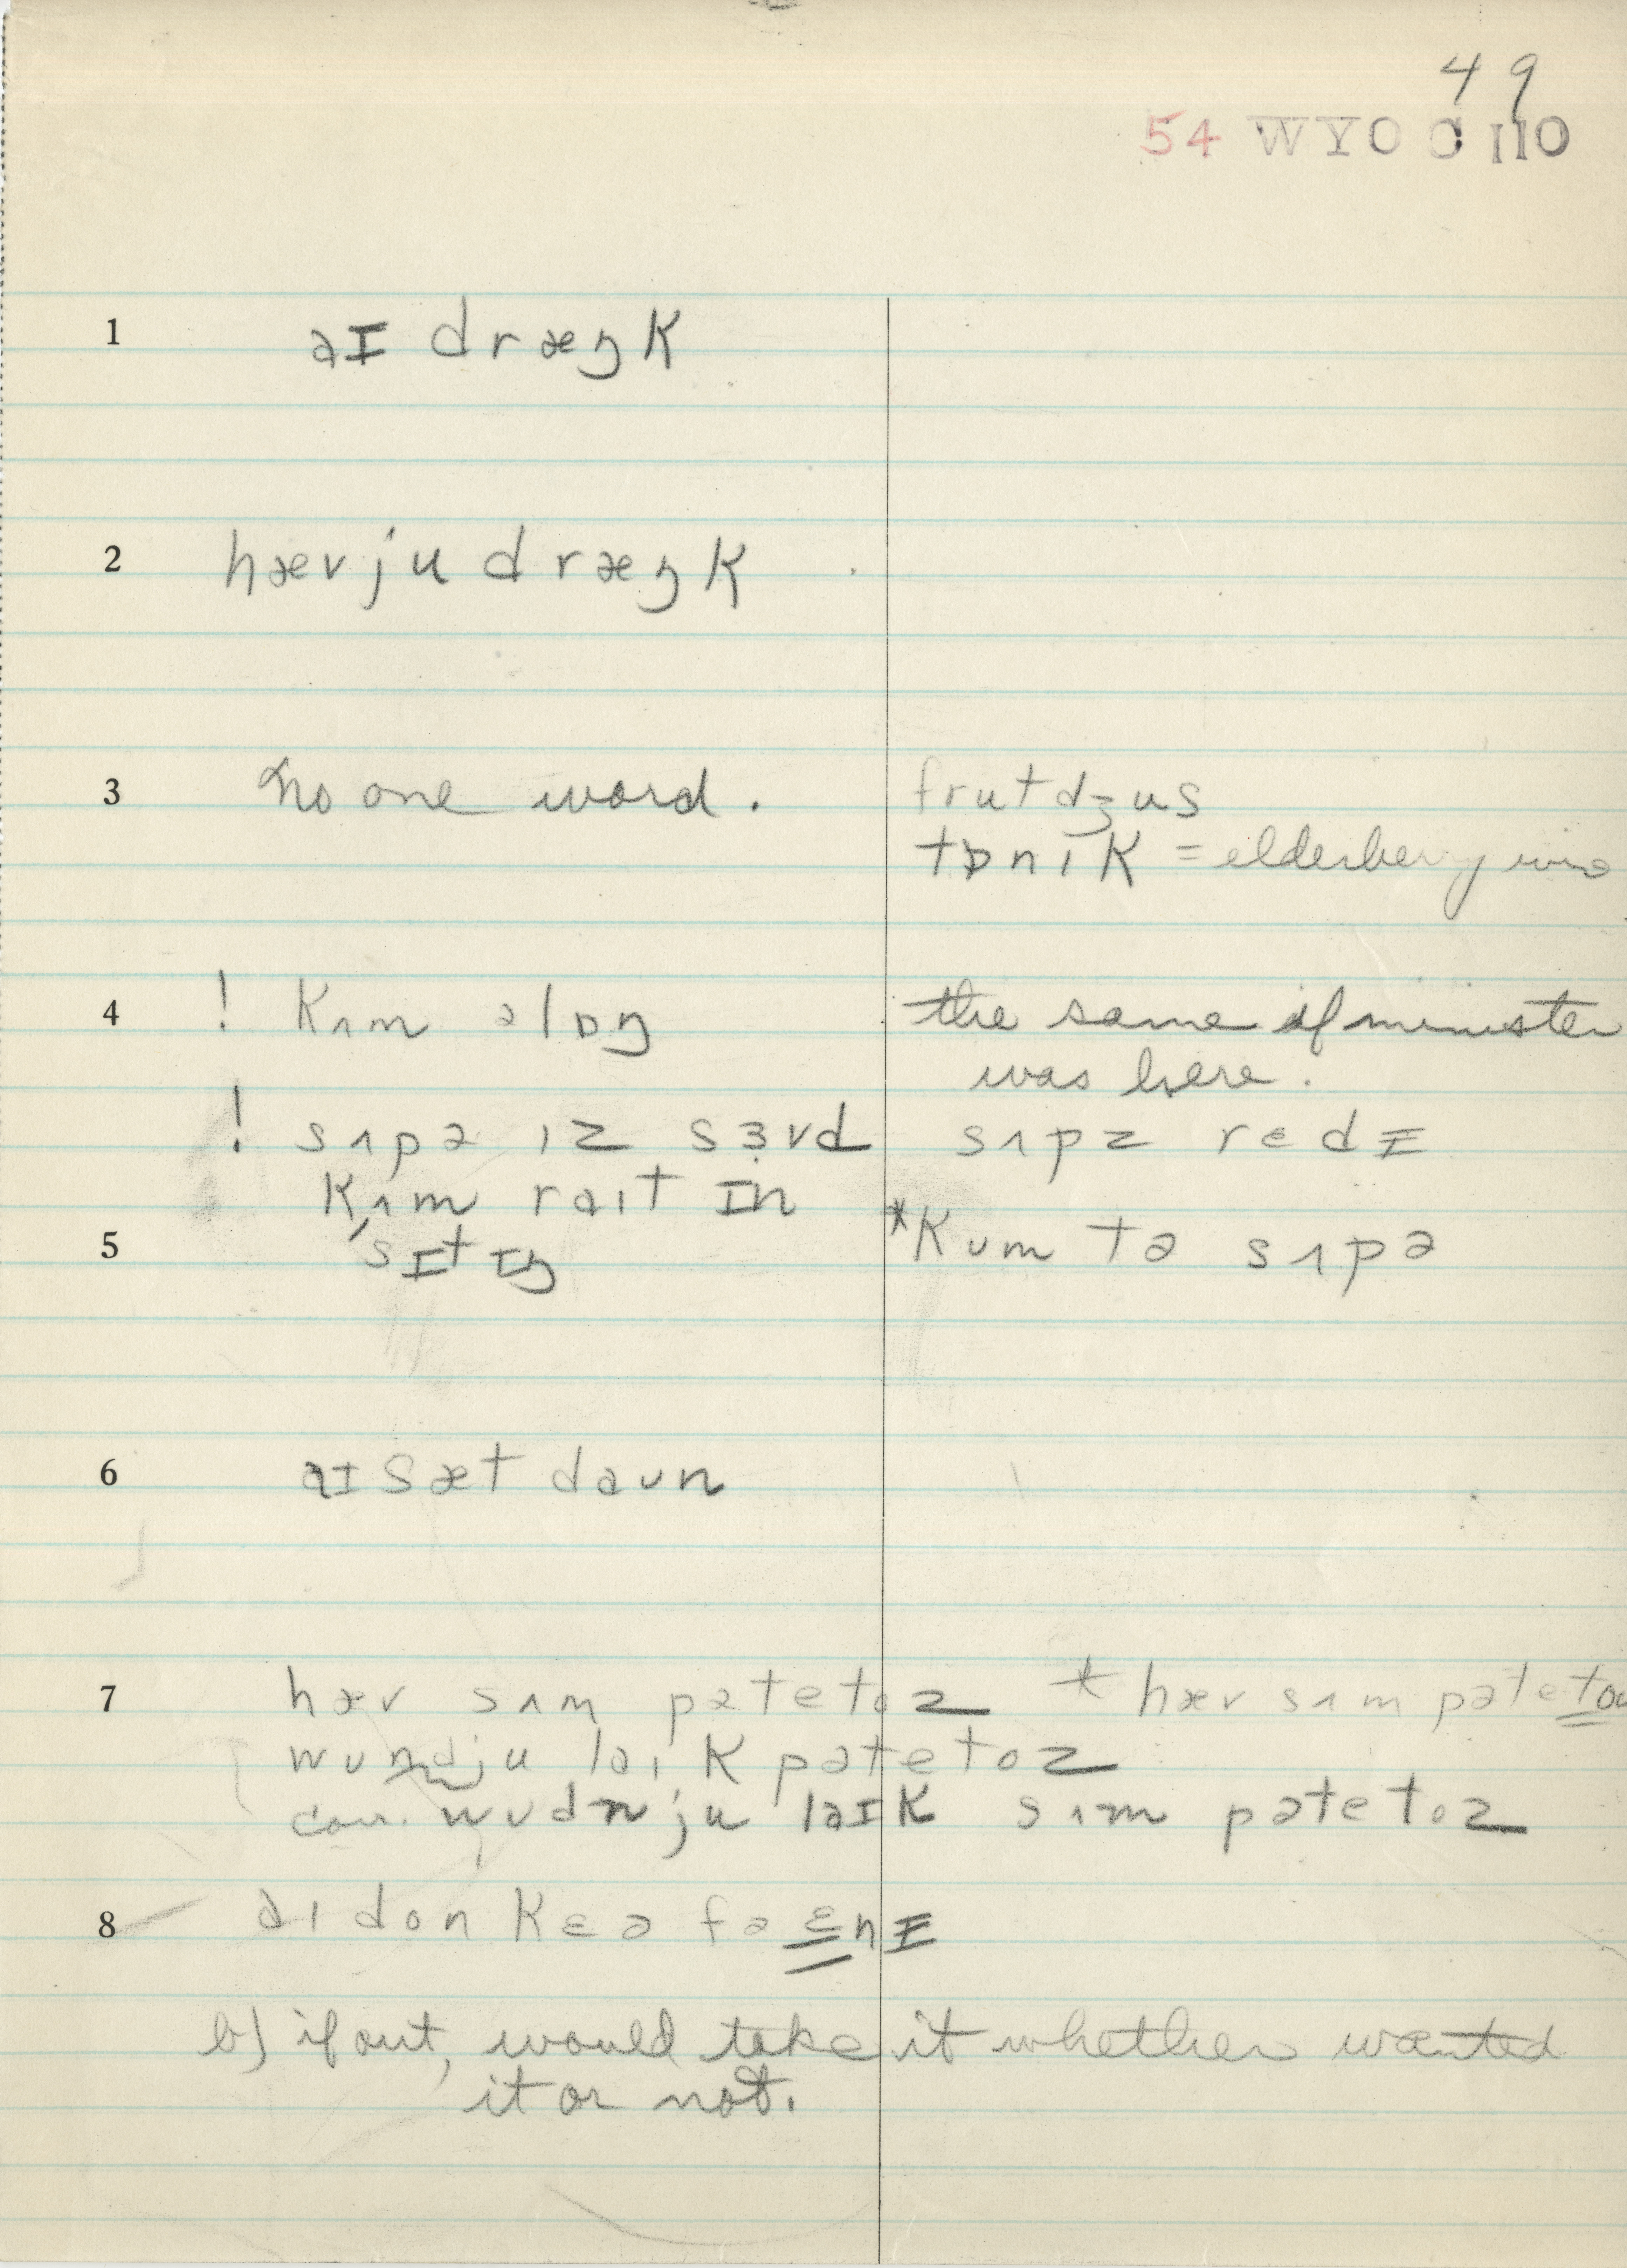 49
54 WYO
1 aɪ dræŋk
2 hævju dræŋk
3 no one word. frutdʒus
tɒnɪk = elderberry wine
4 ! kʌm əlɒŋ the same if minister
was here.
! sʌpə ɪz sɜvd sʌpz redɪ
kʌm raɪt ɪn
5 'sɪtɪŋ *kʊm tə sʌpə
6 aɪ sæt daʊn
7 hæv sʌm pətetoz * hæv sʌm pətetoʊ
wundju laɪk pətetoz
corr. wʊdnju laɪk sʌm pətetoz
8 aɪ don kɛə fə ɛnɪ
b) if out, would take it whether wanted
it or not.